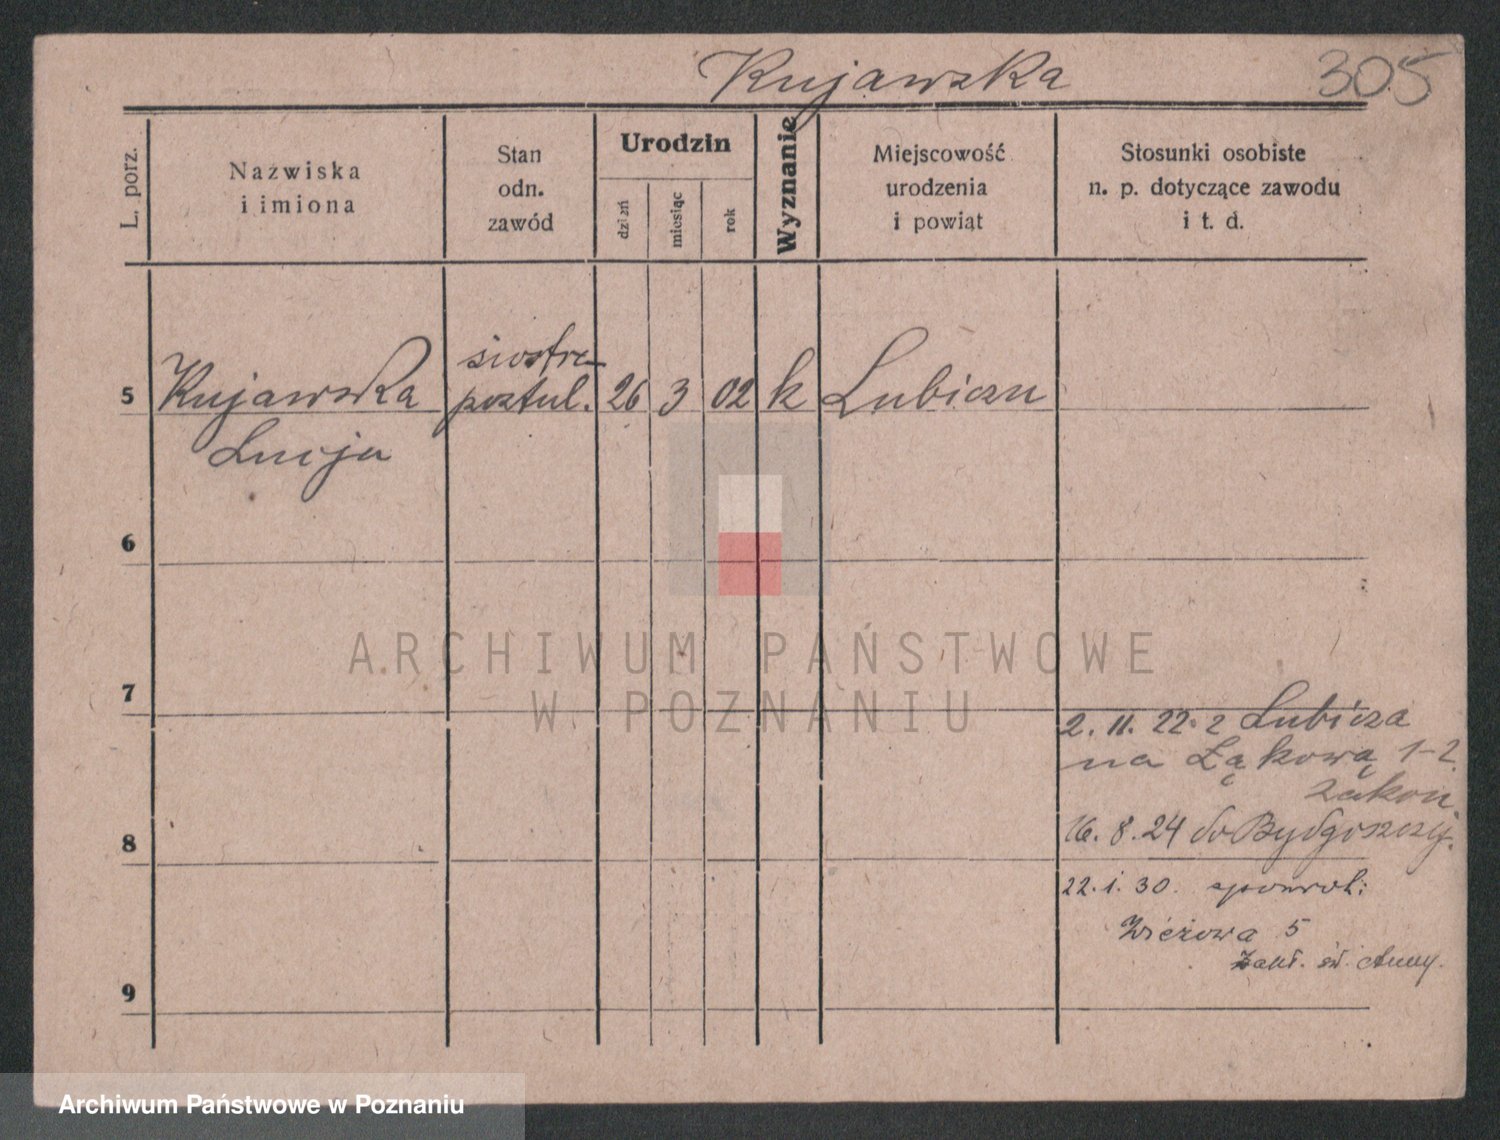 Kujawska 305
L. porz.
Nazwiska
i imiona
Stan
odn.
zawód
Urodzin
dzień
miesiąc
rok
Wyznanie
Miejscowość
urodzenia
i powiat
Stosunki osobiste
n. p. dotyczące zawodu
i t. d.
siostra
5 Kujawska postul. 26 3 02 k Lubicz
Lucja
6
ARCHIWUM PAŃSTWOWE
W POZNANIU
7
2. 11. 22. z Lubicza
na Łąkową 1-2
zakon.
16. 8. 24 do Bydgoszczy.
8
22. 1. 30.
Wieżowa 5
Zakł. św. Anny.
9
Archiwum Państwowe w Poznaniu